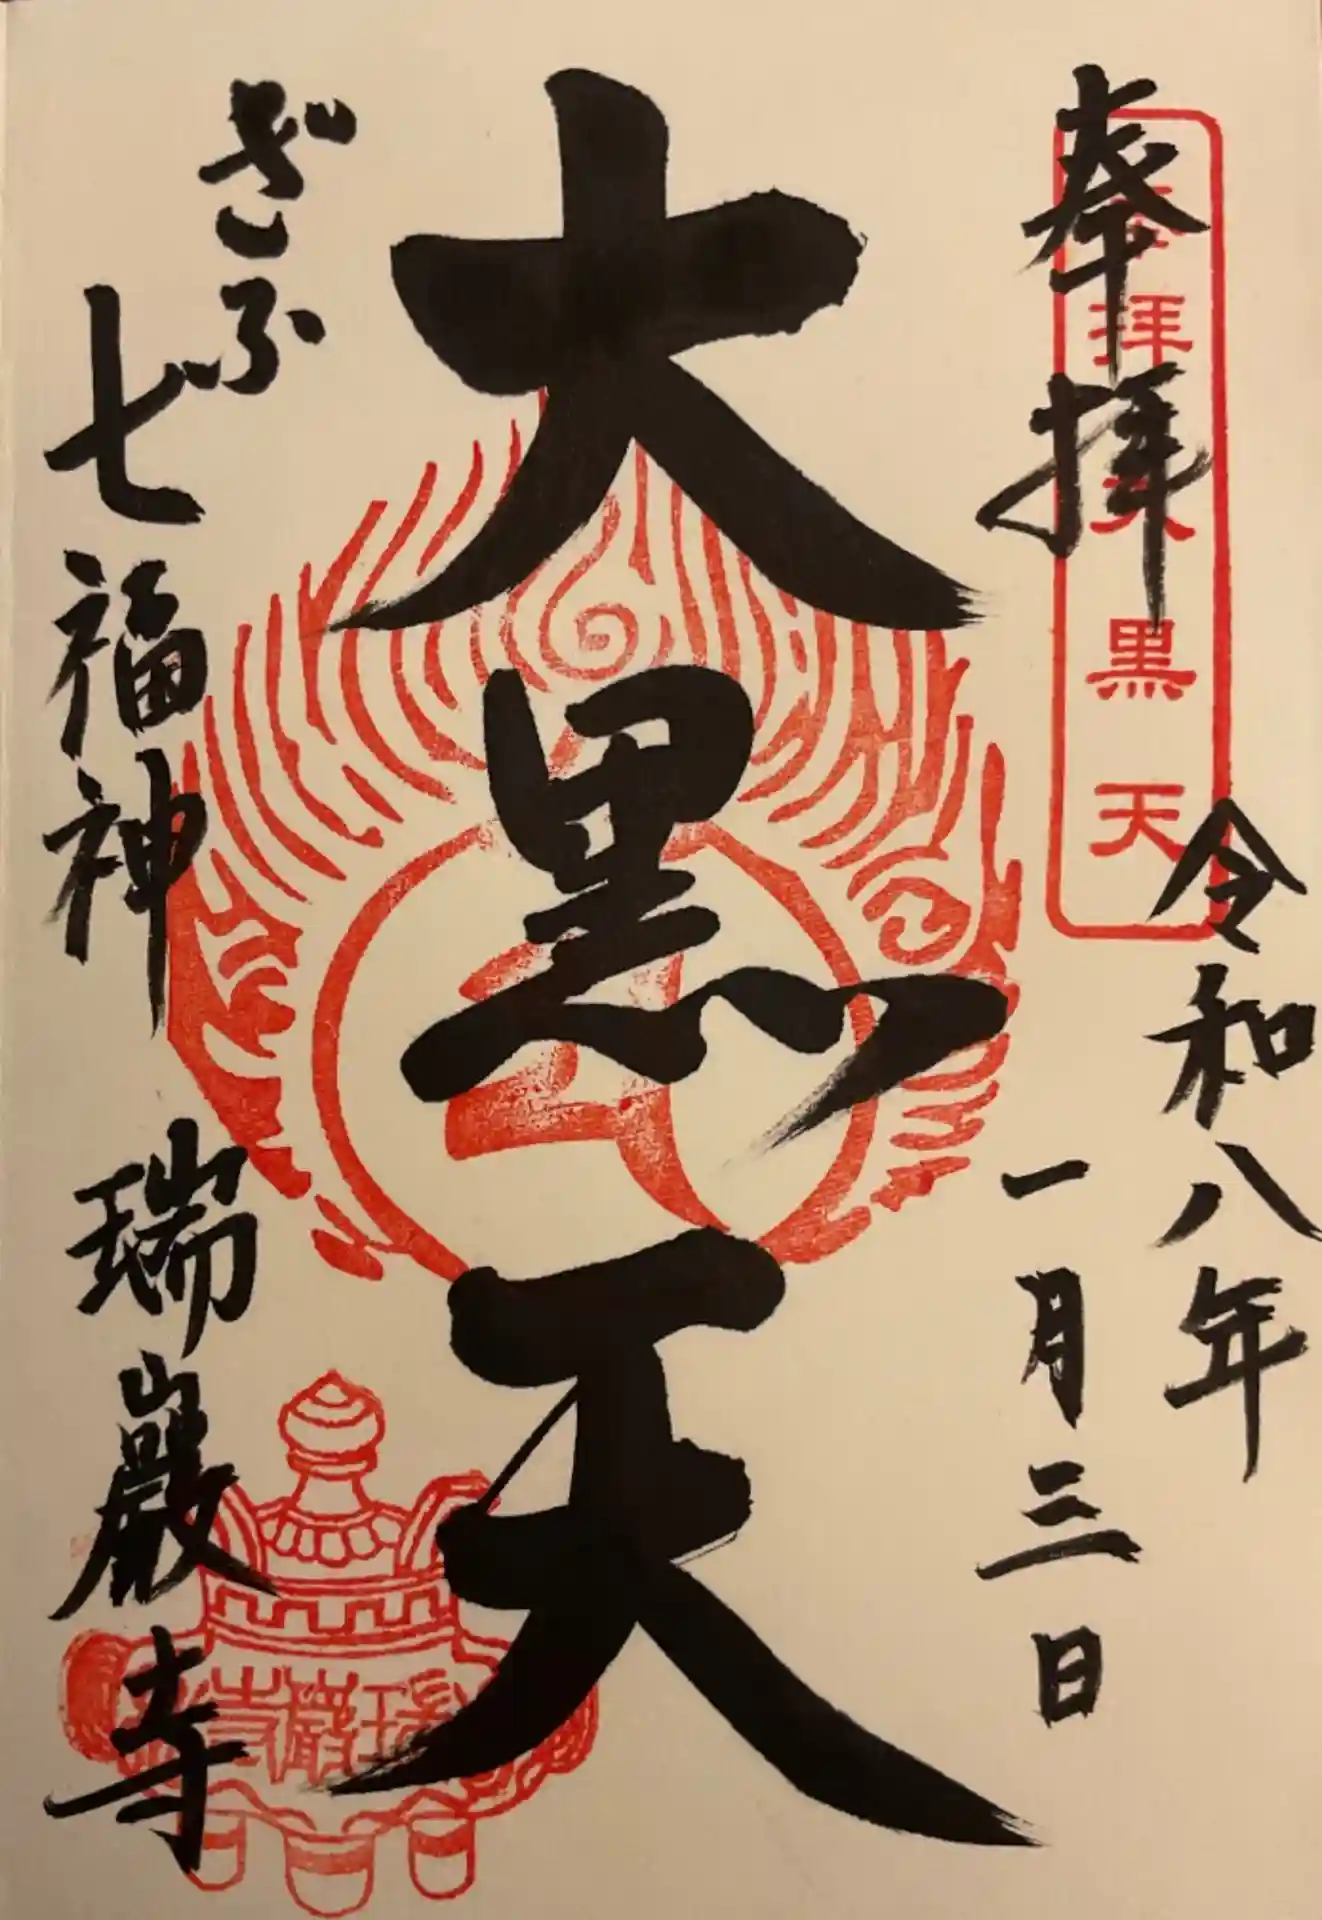 奉拝
奉拝大黒天
令和八年
一月三日
大黒天
ぎふ
七福神 瑞巌寺
瑞巌寺